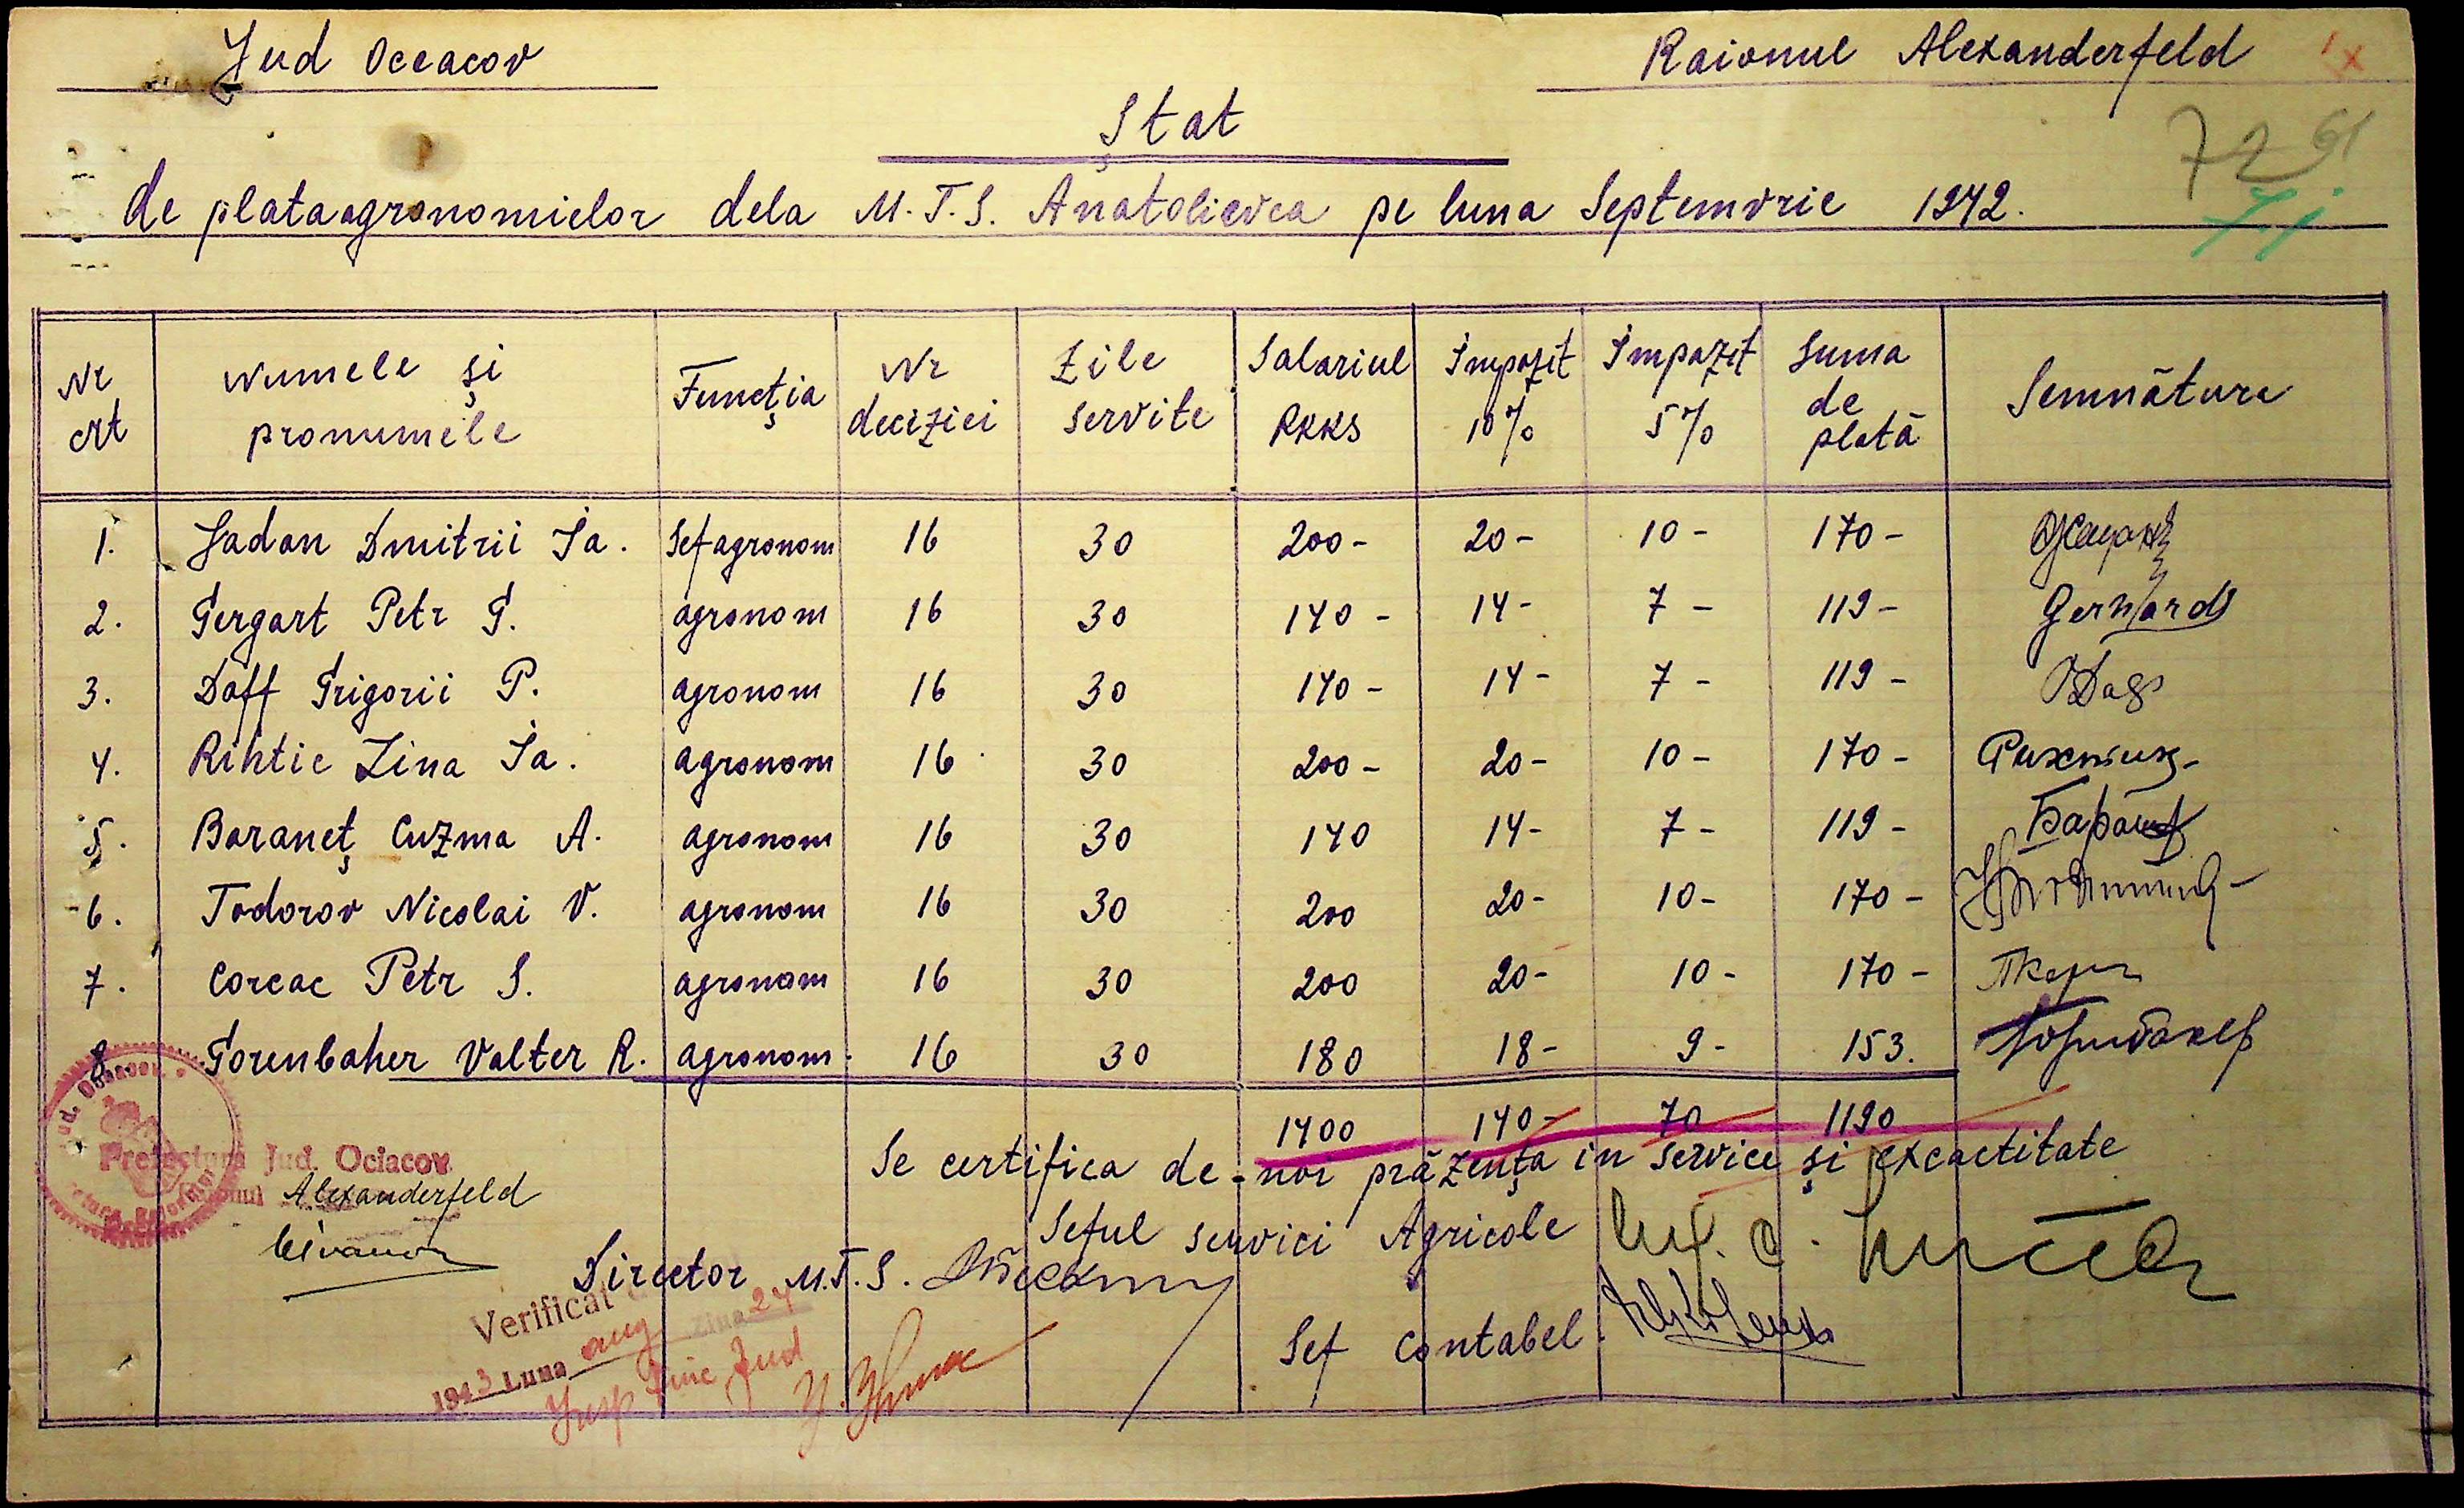 Jud Oceacov
Raionul Alexanderfeld
Ștat
de plata agronomielor dela M.T.S. Anatolievca pe luna Septemvrie 1942.
Nr crt Numele și pronumele Funcția Nr deciziei Zile servite Salariul RKKS Impozit 10% Impozit 5% Suma de plată Semnătura
1. Jadan Dmitrii Ia. Sef agronom 16 30 200- 20- 10- 170-
2. Gergart Petr G. agronom 16 30 140- 14- 7- 119- Gerhards
3. Daff Grigorii P. agronom 16 30 140- 14- 7- 119-
4. Rihtic Zina Ia. agronom 16 30 200- 20- 10- 170- Рихтик
5. Baraneț Cuzma A. agronom 16 30 140 14- 7- 119-
6. Todorov Nicolai V. agronom 16 30 200 20- 10- 170-
7. Coreac Petr S. agronom 16 30 200 20- 10- 170-
8. Gorenbaher Valter R. agronom. 16 30 180 18- 9- 153.
1400 140- 70 1190
Se certifica de noi prăzența in service și excactitate
Prefectura Jud. Ociacov
Raionul Alexanderfeld
Seful servici Agricole
Director M.T.S.
Sef Contabel.
Verificat
1943 Luna aug Ziua 24
Insp Finc Jud
72
61